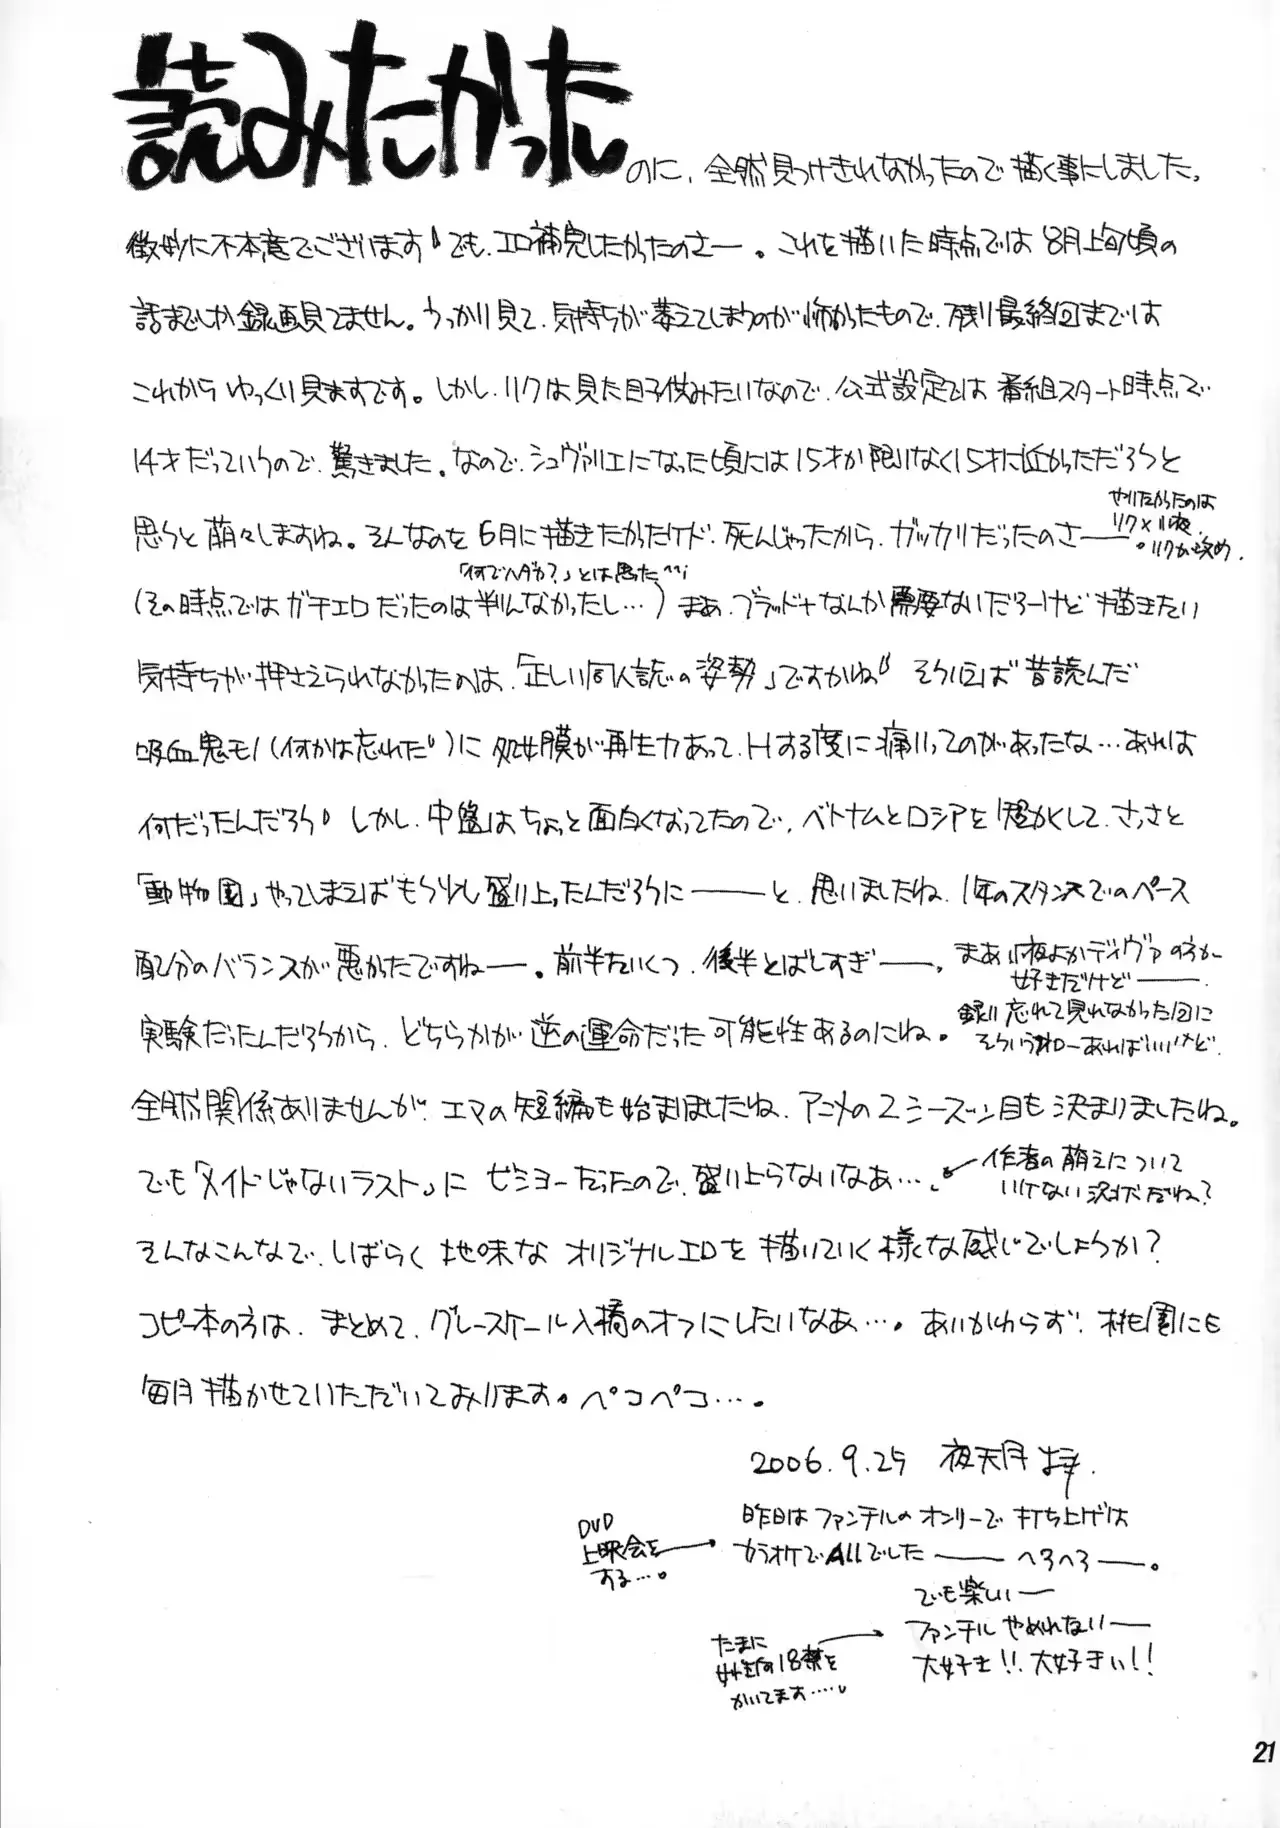 読みたかったのに、全然見つけきれなかったので描く事にしました。
微妙に不本意でございます でも、エロ補完したかったのさー。これを描いた時点では8月上旬頃の
話までしか録画見てません。うっかり見て、気持ちが萎えてしまうのが怖かったもので、残り最終回までは
これからゆっくり見ますです。しかし、リクは見た目子供みたいなので、公式設定では番組スタート時点で
14才だっていうので、驚きました。なので、シュヴァリエになった頃には15才か限りなく15才に近かっただろうと
思うと萌々しますね。そんなのを6月に描きたかったケド、死んじゃったから、ガッカリだったのさ――。
やりたかったのは
リク×小夜。
リクが攻め。
「何でハダカ?」とは思った^^;
(その時点ではガチエロだったのは判んなかったし…)まぁ、ブラッド+なんか需要ないだろーけど描きたい
気持ちが押さえられなかったのは、「正しい同人誌の姿勢」ですかね そういえば昔読んだ
吸血鬼モノ(何かは忘れた)に処女膜が再生力あって、Hする度に痛いってのがあったな…あれは
何だったんだろう しかし、中盤はちょっと面白くなってたので、ベトナムとロシアを短かくして、さっさと
「動物園」やってしまえばもう少し盛り上ったんだろうに――と、思いましたね、1年のスタンスでのペース
配分のバランスが悪かったですねー。前半たいくつ、後半とばしすぎ――。
まあ小夜よかディヴァの方が
好きだけど――。
実験だったんだろうから、どちらかが逆の運命だった可能性あるのにね。
録り忘れて見れなかった回に
そういうネターあればいいけど。
全然関係ありませんが、エマの短編も始まりましたね、アニメの2シーズン目も決まりましたね。
でも「メイドじゃないラスト」にビミョーだったので、盛り上らないなぁ…。
作者の萌えについて
いけない状態だね?
そんなこんなで、しばらく地味なオリジナルエロを描いていく様な感じでしょうか?
コピー本の方は、まとめて、グレースケール入稿のオフにしたいなぁ…。あいかわらず、桃園にも
毎月描かせていただいております。ペコペコ…。
2006.9.25 夜天月 拝.
昨日はファンテルのオンリーで打ち上げは
カラオケでAllでした――へろへろ――。
DVD
上映会を
する…。
でも楽しい――
ファンテルやめれない――
大好き!! 大好きぃ!!
たまに
女性向18禁を
かいてます…。
21